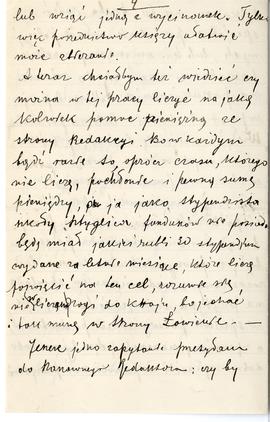 4
lub wziąć jedną z wycinanek. Tylko
więc pośrednictwo księży ułatwić
może zbieranie.
A teraz chciałbym też wiedzieć czy
można w tej pracy liczyć na jaką
kolwiek pomoc pieniężną ze
strony Redakcyi bo w każdym
bądź razie to, oprócz czasu, którego
nie liczę, pochłonie i pewną sumę
pieniędzy, ja jako stypendysta
szkoły funduszów nie posiadam
będę miał jakieś rubli 50 stypendium
wydane za letnie miesiące, które chcę
poświęcić na ten cel, rozumie się
nie licząc drogi do kraju, bo jechać
i tak muszę w strony Łowickie. —
Jeszcze jedno zapytanie przesyłam
do Szanownego Redaktora: czy by